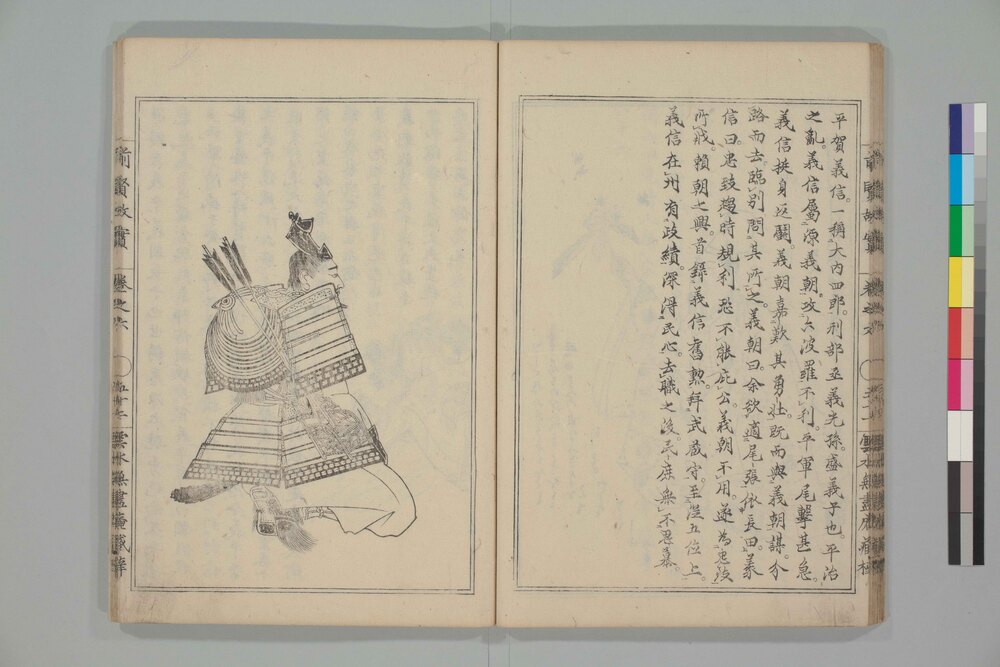 平賀義信。一稱大内四郎。刑部丞義光孫。盛義子也。平治
之亂。義信屬源義朝。攻六波羅不利。平軍尾擊甚急。
義信挺身返鬪。義朝嘉歎其勇壯。既而與義朝謀。分
路而去。臨別問其所之。義朝曰。余欲適尾張依長田。義
信曰。忠致趨時規利。恐不能庇公。義朝不用。遂為忠致
所戕。賴朝之興。首錄義信舊勲。拜武藏守。至從五位上。
義信在州有政績。深得民心。去職之後。民庶無不思慕。
前賢故實
卷之六
雲水無盡庵藏梓